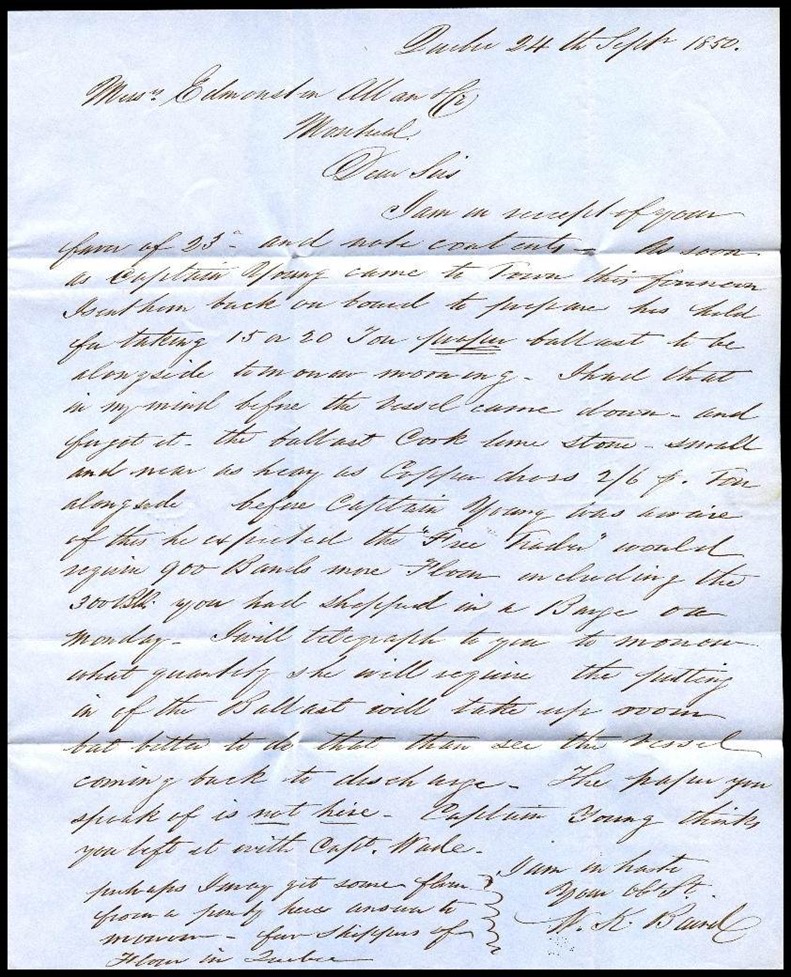 Quebec 24th Sept 1850.
Messrs Edmonston Allan & Co
Montreal
Dear Sirs
I am in receipt of your
favor of 23d - and note contents - As soon
as Captain Young came to Town this forenoon
I sent him back on board to prepare his hold
for taking 15 or 20 Ton proper ballast to be
alongside tomorrow morning - I had that
in my mind before the vessel came down - and
forgot it - the ballast lime stone - small
and near as heavy as Copper dross 2/6 p. Ton
alongside before Captain Young was aware
of this he expected the "Free Trader" would
require 900 Barrels more Flour including the
300 Bls. you had shipped in a Barge on
Monday - I will telegraph to you tomorrow
what quantity she will require the putting
in of the Ballast will take up room
but better to do that than see the vessel
coming back to discharge - The paper you
speak of is not here - Captain Young thinks
you left it with Capt. Wade -
I am in haste
Your Obt St.
W. K. Baird
perhaps I may get some flour
from a party here answer to
morrow - few shippers of
Flour in Quebec